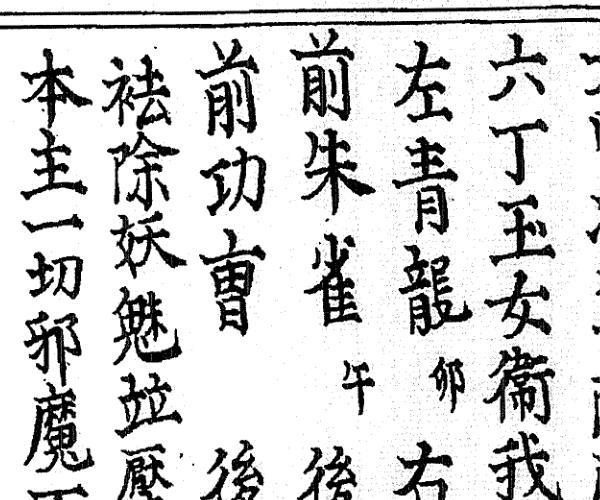 六丁玉女衞我
左青龍卯右
前朱雀午後
前功曺後
袪除妖魅並壓
本主一切邪魔